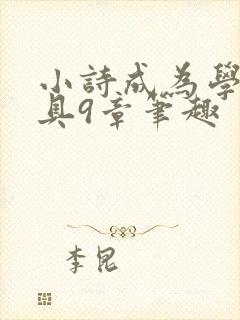 小詩成為學
具9章筆趣
李昆